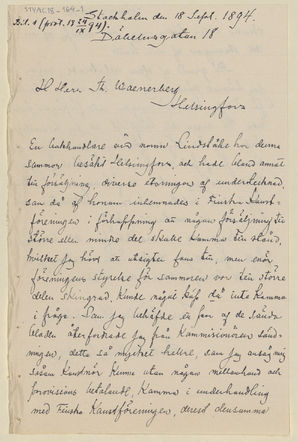 STYAC18-164-1
Bil. 1 (prot. 13 24/IX 94).
Stockholm den 18 Sept. 1894.
Döbelnsgatan 18
H Herr Th. Waenerberg
Helsingfors
En bokhandlare vid namn Lindståhl har denna
sommar besökt Helsingfors, och hade bland annat
till försäljning diverse etsningar af undertecknad,
som då af honom inlemnades i Finska Konst-
föreningen i förhoppning att någon försäljning till
större eller mindre del skulle komma till stånd,
hvilket jag hörde att utsigter fans till, men enär
föreningens styrelse för sommaren var till större
delen skingrad, kunde något köp då inte komma
i fråga. Som jag behöfde ett par af de sända
bladen återfordrade jag från Kommissionären sänd-
ningen, detta så mycket hellre, som jag ansåg mig
såsom Konstnär kunna utan någon mellanhand och
provisions betalande, komma i underhandling
med Finska Konstföreningen, derest densamma